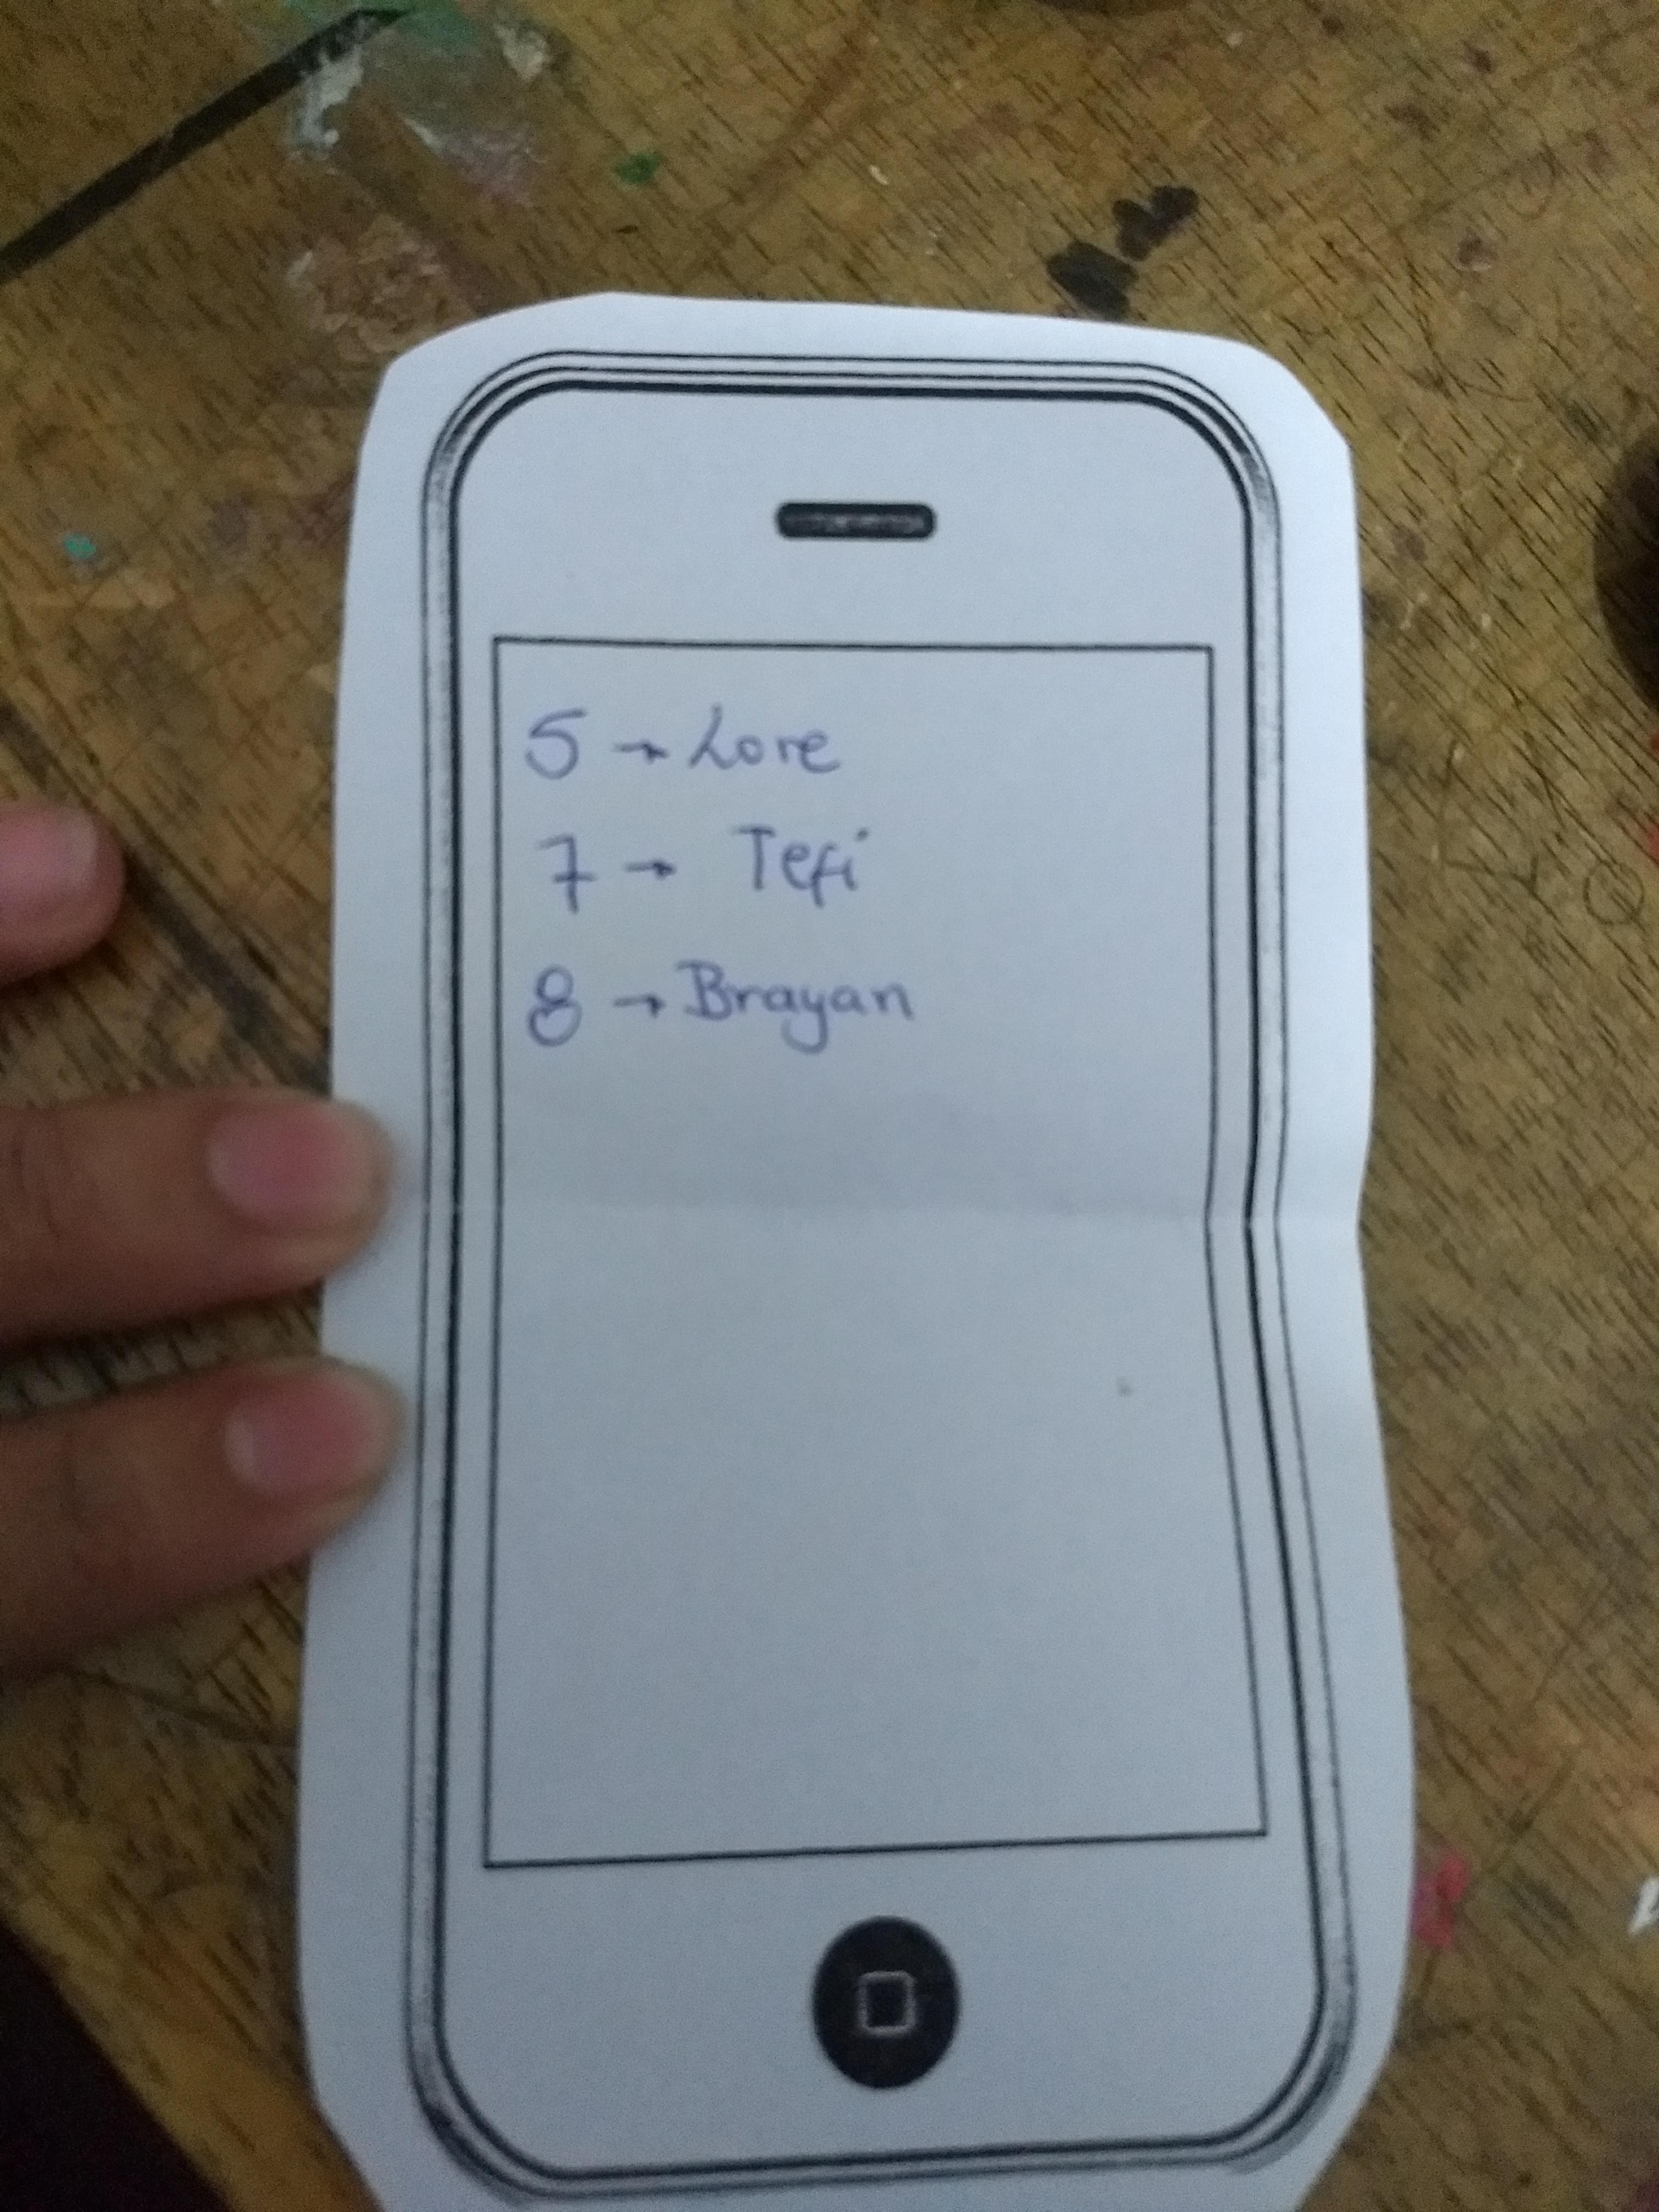 5 → Lore
7 → Tefi
8 → Brayan